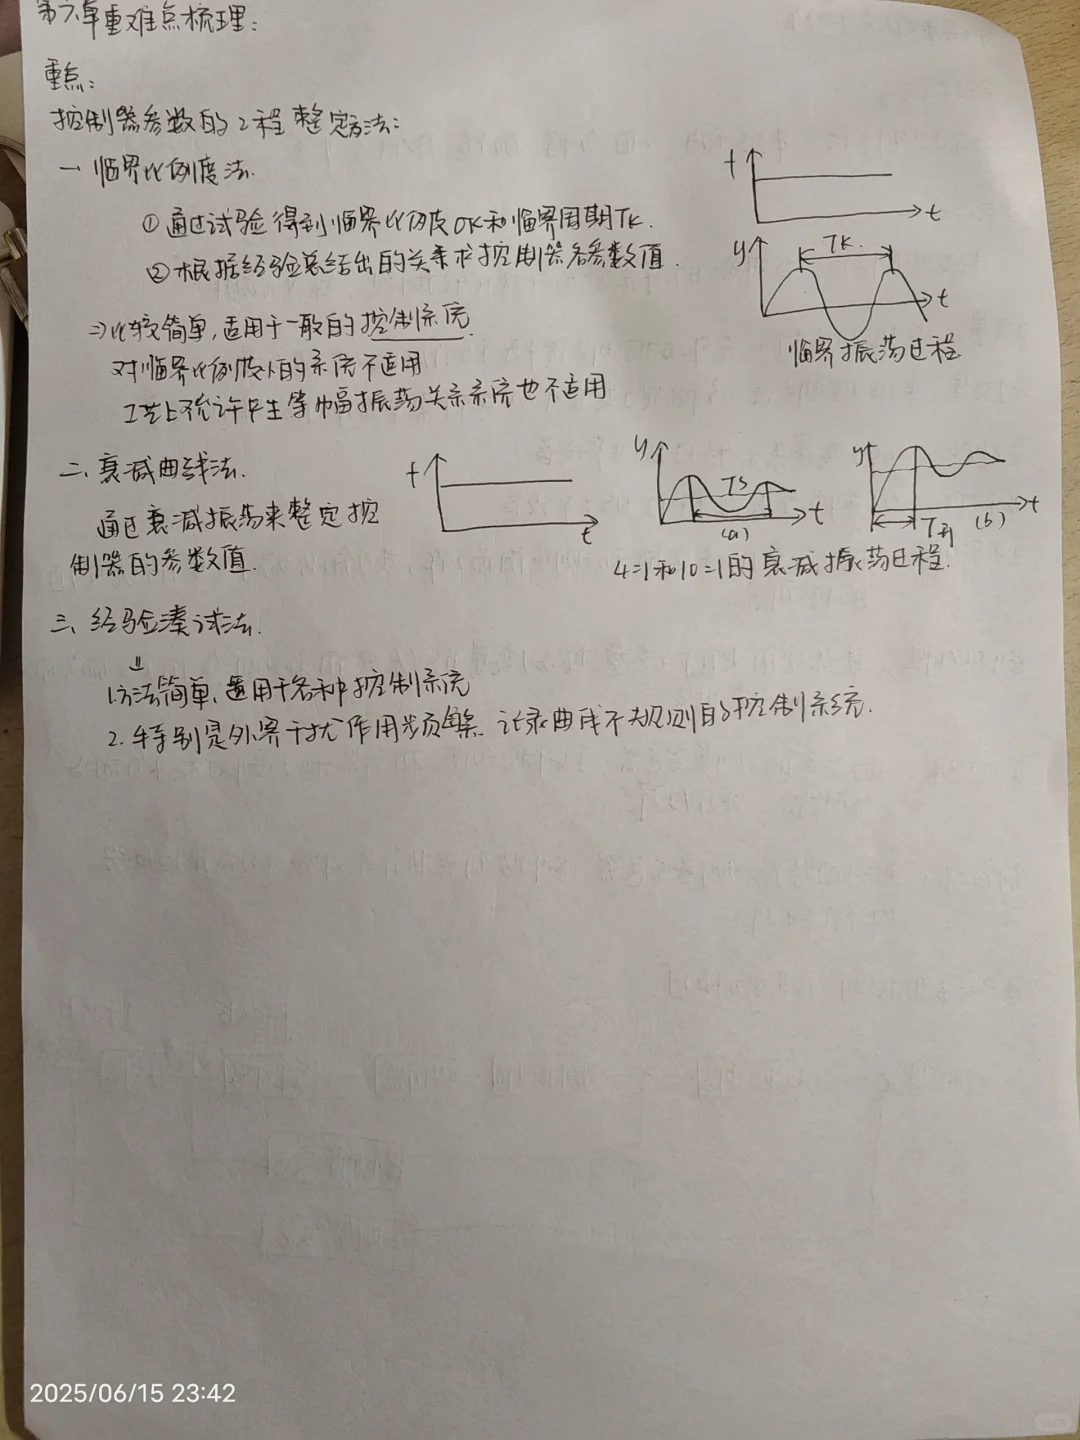 第六章重难点梳理:
重点:
控制器参数的工程整定方法:
一 临界比例度法.
① 通过试验得到临界比例度δK和临界周期TK.
② 根据经验总结出的关系求控制器各参数值.
⇒比较简单,适用于一般的控制系统
对临界比例度小的系统不适用
工艺上不允许产生等幅振荡关系系统也不适用
t
t
y
TK.
t
临界振荡过程
二、衰减曲线法.
通过衰减振荡来整定控
制器的参数值.
t
t
y
TS
t
(a)
y
t
(b)
4:1和10:1的衰减振荡过程.
三、经验凑试法.
1.方法简单,适用于各种控制系统
2. 特别是外界干扰作用频繁. 记录曲线不规则的控制系统.
2025/06/15 23:42